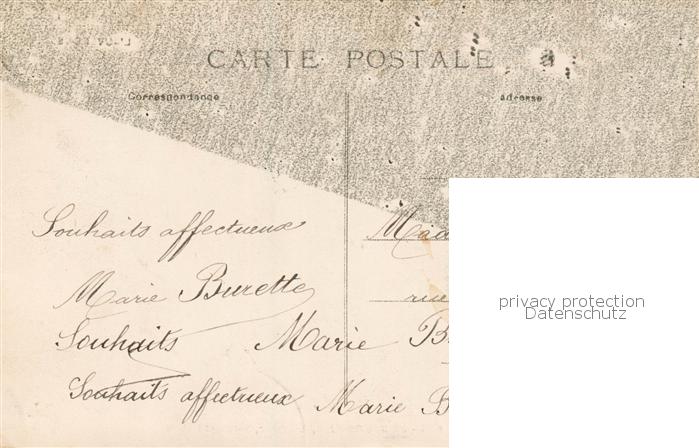 CARTE POSTALE
Correspondance
Adresse
Souhaits affectueux
Marie Burette
Souhaits Marie B
Souhaits affectueux Marie B
rue
privacy protection
Datenschutz